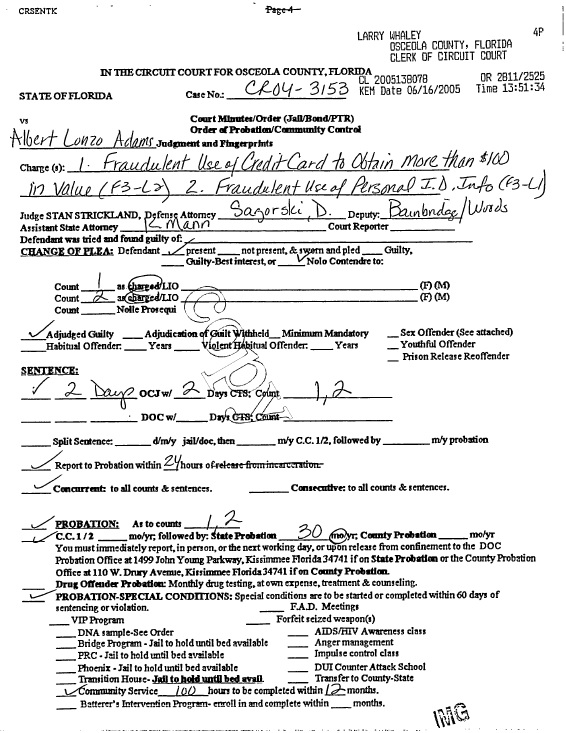 CRSENTK
Page 4
LARRY WHALEY 4P
OSCEOLA COUNTY, FLORIDA
CLERK OF CIRCUIT COURT
IN THE CIRCUIT COURT FOR OSCEOLA COUNTY, FLORIDA
CL 2005138078 OR 2811/2525
STATE OF FLORIDA Case No.: CR04-3153 KEM Date 06/16/2005 Time 13:51:34
vs Court Minutes/Order (Jail/Bond/PTR)
Order of Probation/Community Control
Albert Lonzo Adams Judgment and Fingerprints
Charge (s): 1. Fraudulent Use of Credit Card to Obtain More than $100
in Value (F3-L2) 2. Fraudulent Use of Personal I.D. Info (F3-L1)
Judge STAN STRICKLAND, Defense Attorney Sagorski, D. Deputy: Bainbridge/Woods
Assistant State Attorney K Mann Court Reporter
Defendant was tried and found guilty of:
CHANGE OF PLEA: Defendant ✓ present ___ not present, & sworn and pled ___ Guilty,
___ Guilty-Best interest, or ✓ Nolo Contendre to:
Count 1 as charged/LIO ___ (F) (M)
Count 2 as charged/LIO ___ (F) (M)
Count ___ Nolle Prosequi
✓ Adjudged Guilty ___ Adjudication of Guilt Withheld ___ Minimum Mandatory ___ Sex Offender (See attached)
___ Habitual Offender: ___ Years ___ Violent Habitual Offender: ___ Years ___ Youthful Offender
___ Prison Release Reoffender
COPY
SENTENCE:
✓ 2 Days OCJ w/ 2 Days CTS; Count 1,2
___ DOC w/ ___ Days CTS; Count ___
___ Split Sentence: ___ d/m/y jail/doc, then ___ m/y C.C. 1/2, followed by ___ m/y probation
✓ Report to Probation within 24 hours of release from incarceration.
✓ Concurrent: to all counts & sentences. ___ Consecutive: to all counts & sentences.
✓ PROBATION: As to counts 1,2
✓ C.C. 1 / 2 ___ mo/yr; followed by: State Probation 30 mo/yr; County Probation ___ mo/yr
You must immediately report, in person, or the next working day, or upon release from confinement to the DOC
Probation Office at 1499 John Young Parkway, Kissimmee Florida 34741 if on State Probation or the County Probation
Office at 110 W. Drury Avenue, Kissimmee Florida 34741 if on County Probation.
___ Drug Offender Probation: Monthly drug testing, at own expense, treatment & counseling.
✓ PROBATION-SPECIAL CONDITIONS: Special conditions are to be started or completed within 60 days of
sentencing or violation. ___ F.A.D. Meetings
___ VIP Program ___ Forfeit seized weapon(s)
___ DNA sample-See Order ___ AIDS/HIV Awareness class
___ Bridge Program - Jail to hold until bed available ___ Anger management
___ PRC - Jail to hold until bed available ___ Impulse control class
___ Phoenix - Jail to hold until bed available ___ DUI Counter Attack School
___ Transition House- Jail to hold until bed avail. ___ Transfer to County-State
✓ Community Service 100 hours to be completed within 12 months.
___ Batterer's Intervention Program- enroll in and complete within ___ months.
IMG